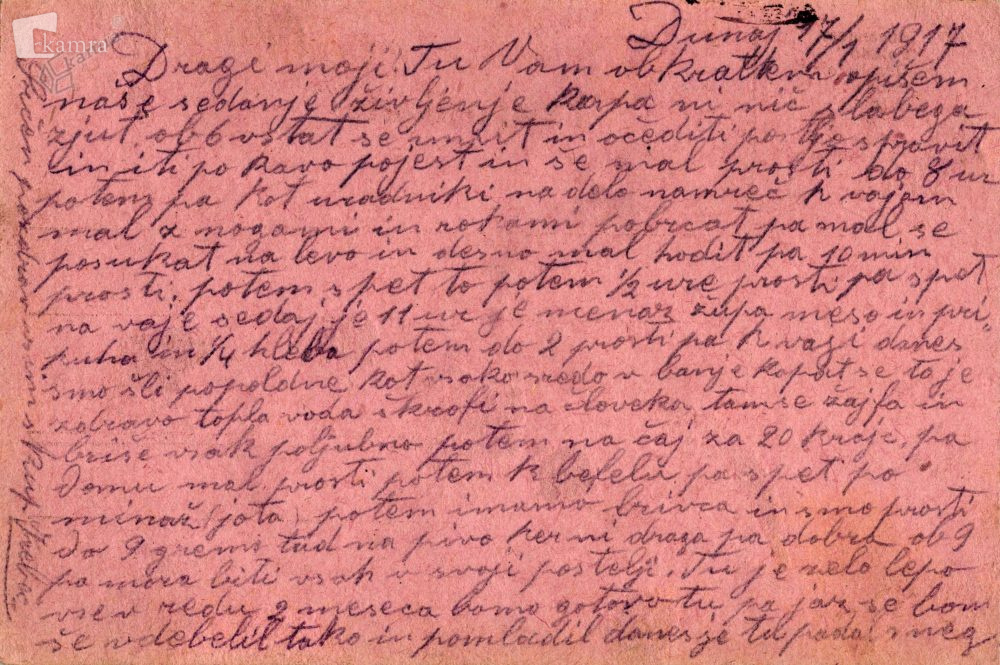 kamra
Dunaj 17/1 1917
Dragi moji! Tu Vam ob kratkem opišem
naše sedanje življenje kar pa ni nič slabega
zjut. ob 6 vstat se umit in očediti postlje spravit
in iti po kavo pojest in še mal prosti do 8 ur
potem pa kot uradniki na delo namreč k vajam
mal z nogami in rokami pobrcat pa mal se
posukat na levo in desno mal hodit pa 10 min
prosti, potem spet to potem 1/2 ure prosti pa spet
na vaje sedaj je 11 ur je menaž župa meso in pri
puha in 1/4 hleba potem do 2 prosti pa k vaji danes
smo šli popoldne kot vsako sredo v banje kopat se to je
zdravo topla voda škrofi na človeka, tam se žajfa in
briše vsak poljubno potem na čaj za 20 kraje, pa
domu mal prosti potem k befelu pa spet po
minaž (jota) potem imamo brivca in smo prosti
do 9 gremo tud na pivo ker ni drago pa dobro ob 9
pa mora biti vsak v svoji postelji. Tu je zelo lepo
vse v redu 2 meseca bomo gotovo tu pa jaz se bom
še vdebelil tako in pomladil danes je tu padal sneg
Srčen pozdrav vsem skup